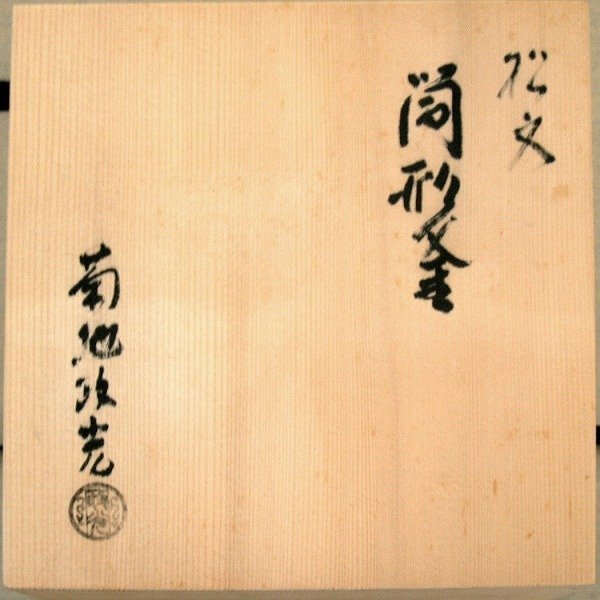 松文
筒形釜
菊地政光